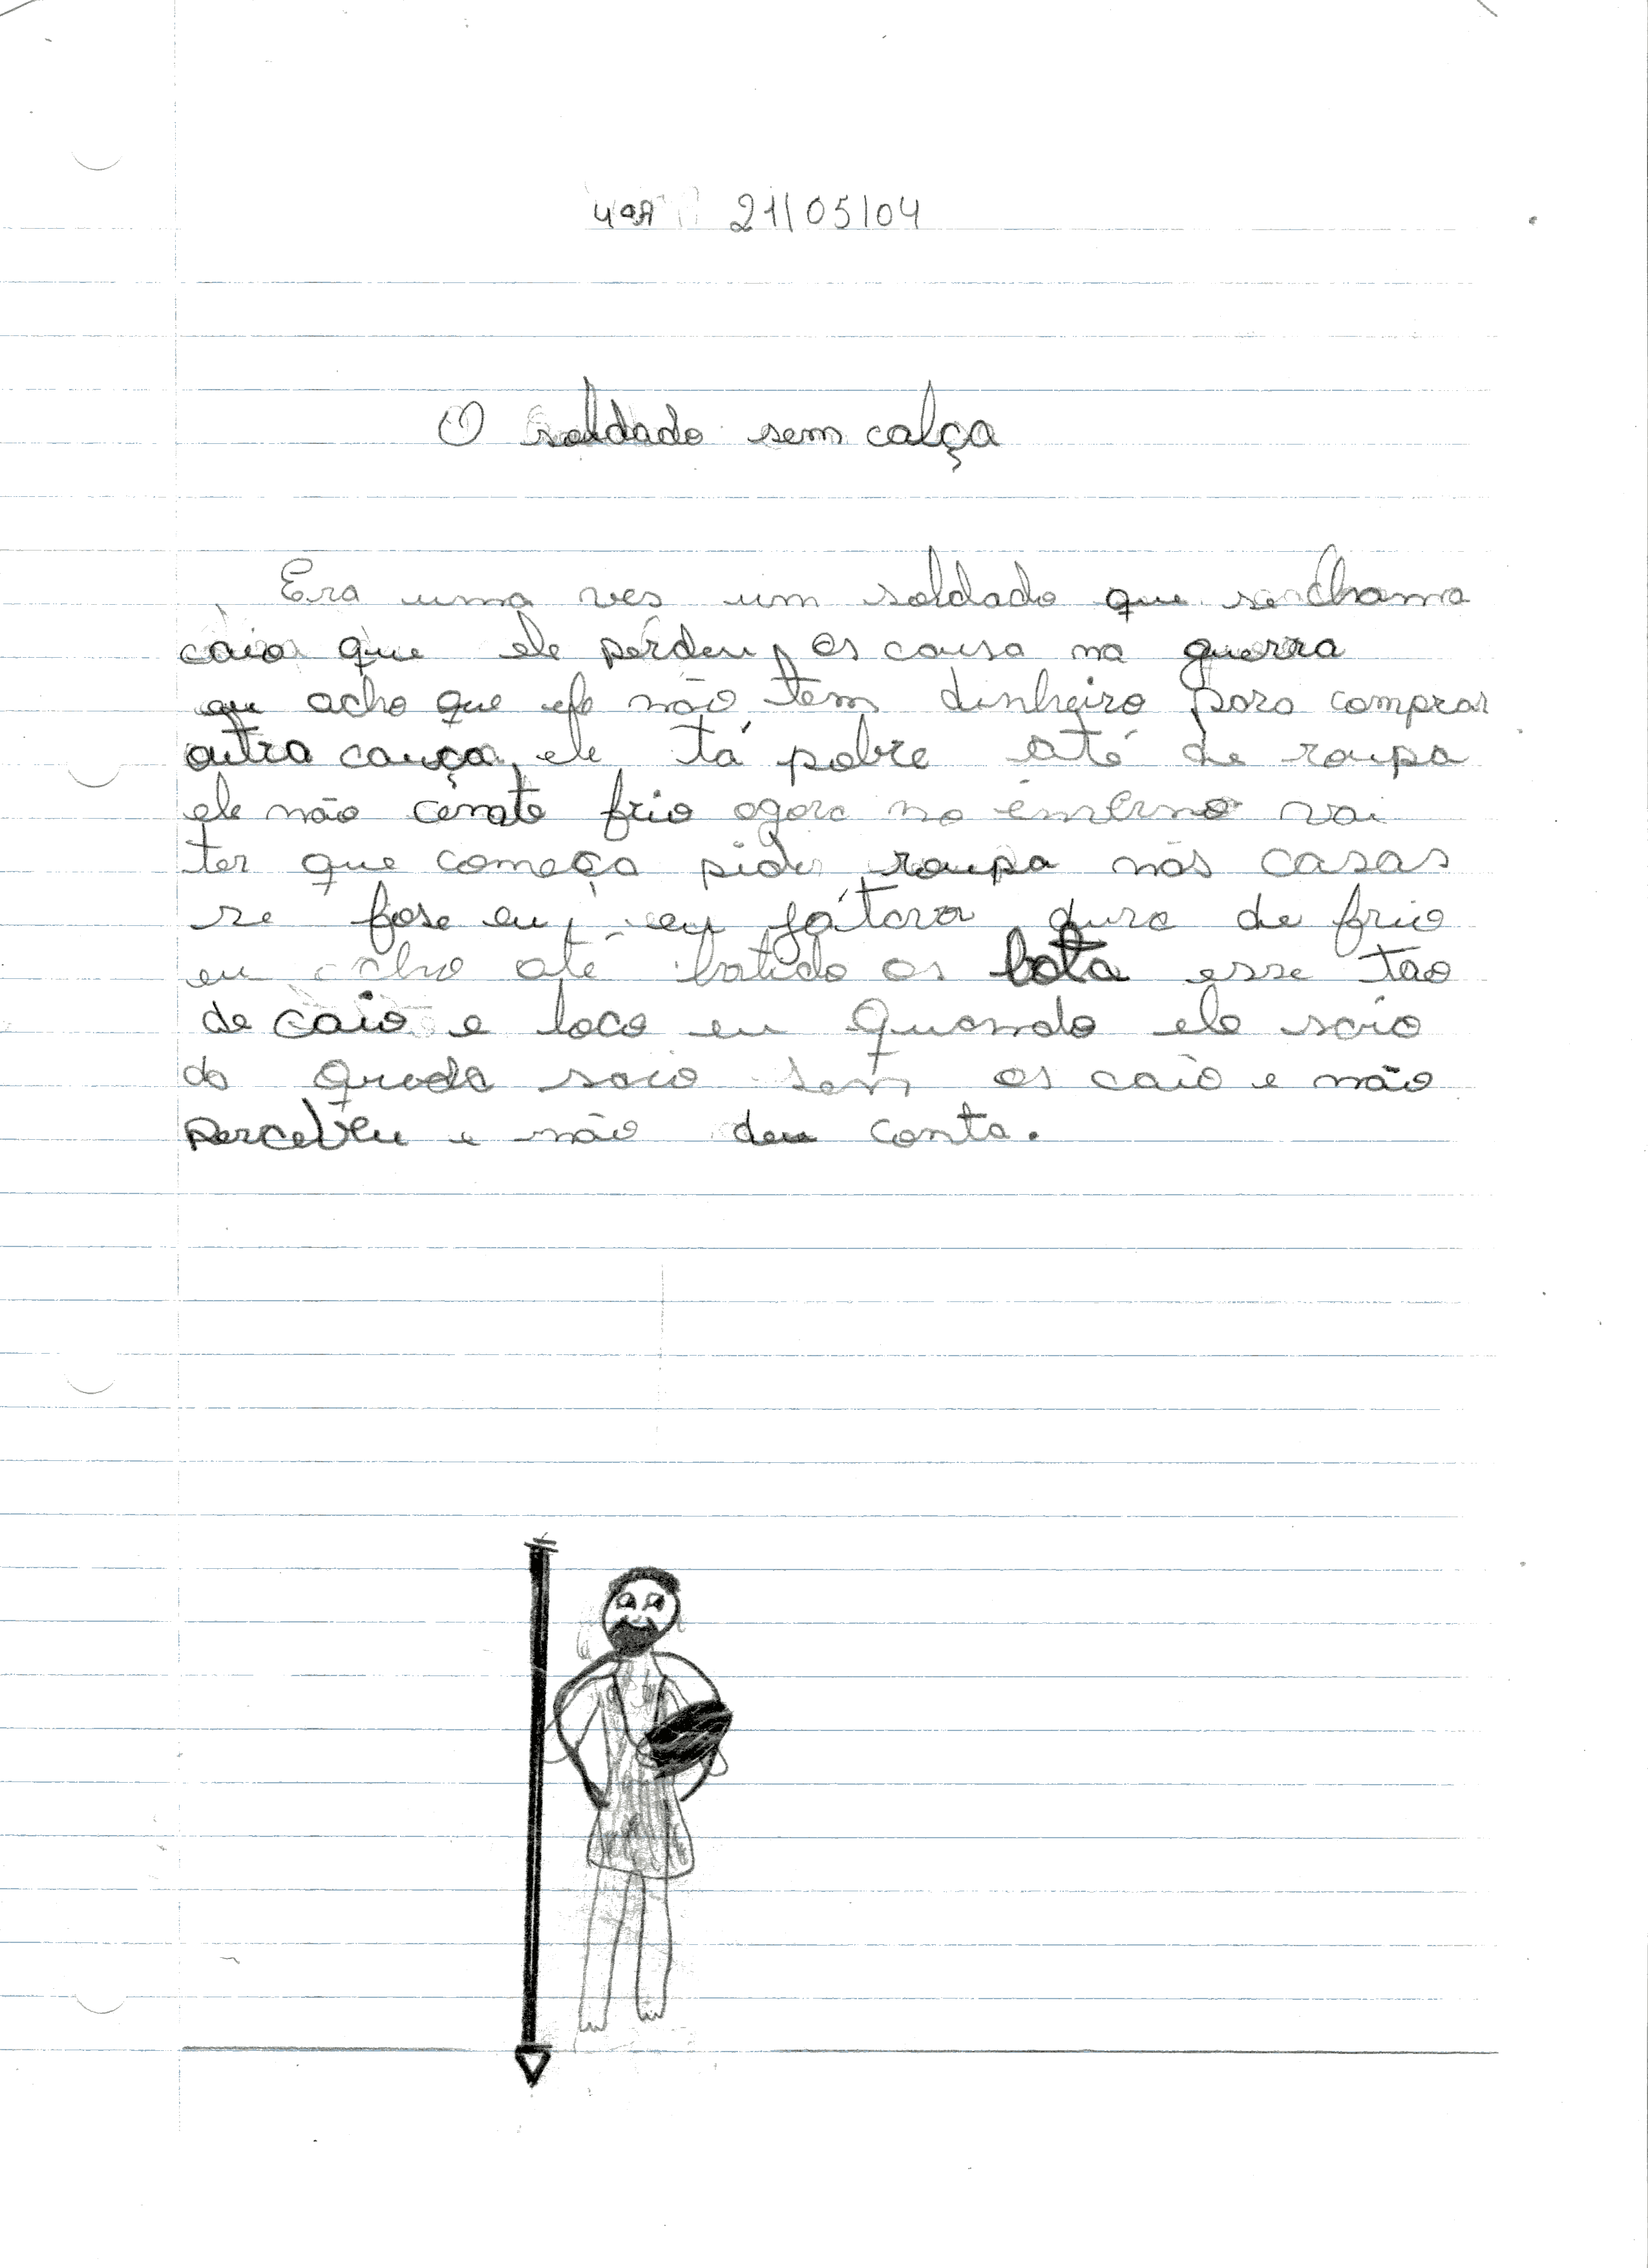 4ªA 21/05/04
O soldado sem calça
Era uma ves um soldado que se chama
caio que ele perdeu as causa na guerra
eu acho que ele não tem dinheiro para comprar
outra cauça, ele tá pobre até de roupa
ele não cente frio agora no inverno vai
ter que começa pidi roupa nas casas
se fose eu, eu já tava duro de frio
eu acho até batido as bota esse tao
de caio e loco eu quando ele saio
da saio sem as caio e não
percebeu e não deu conta.